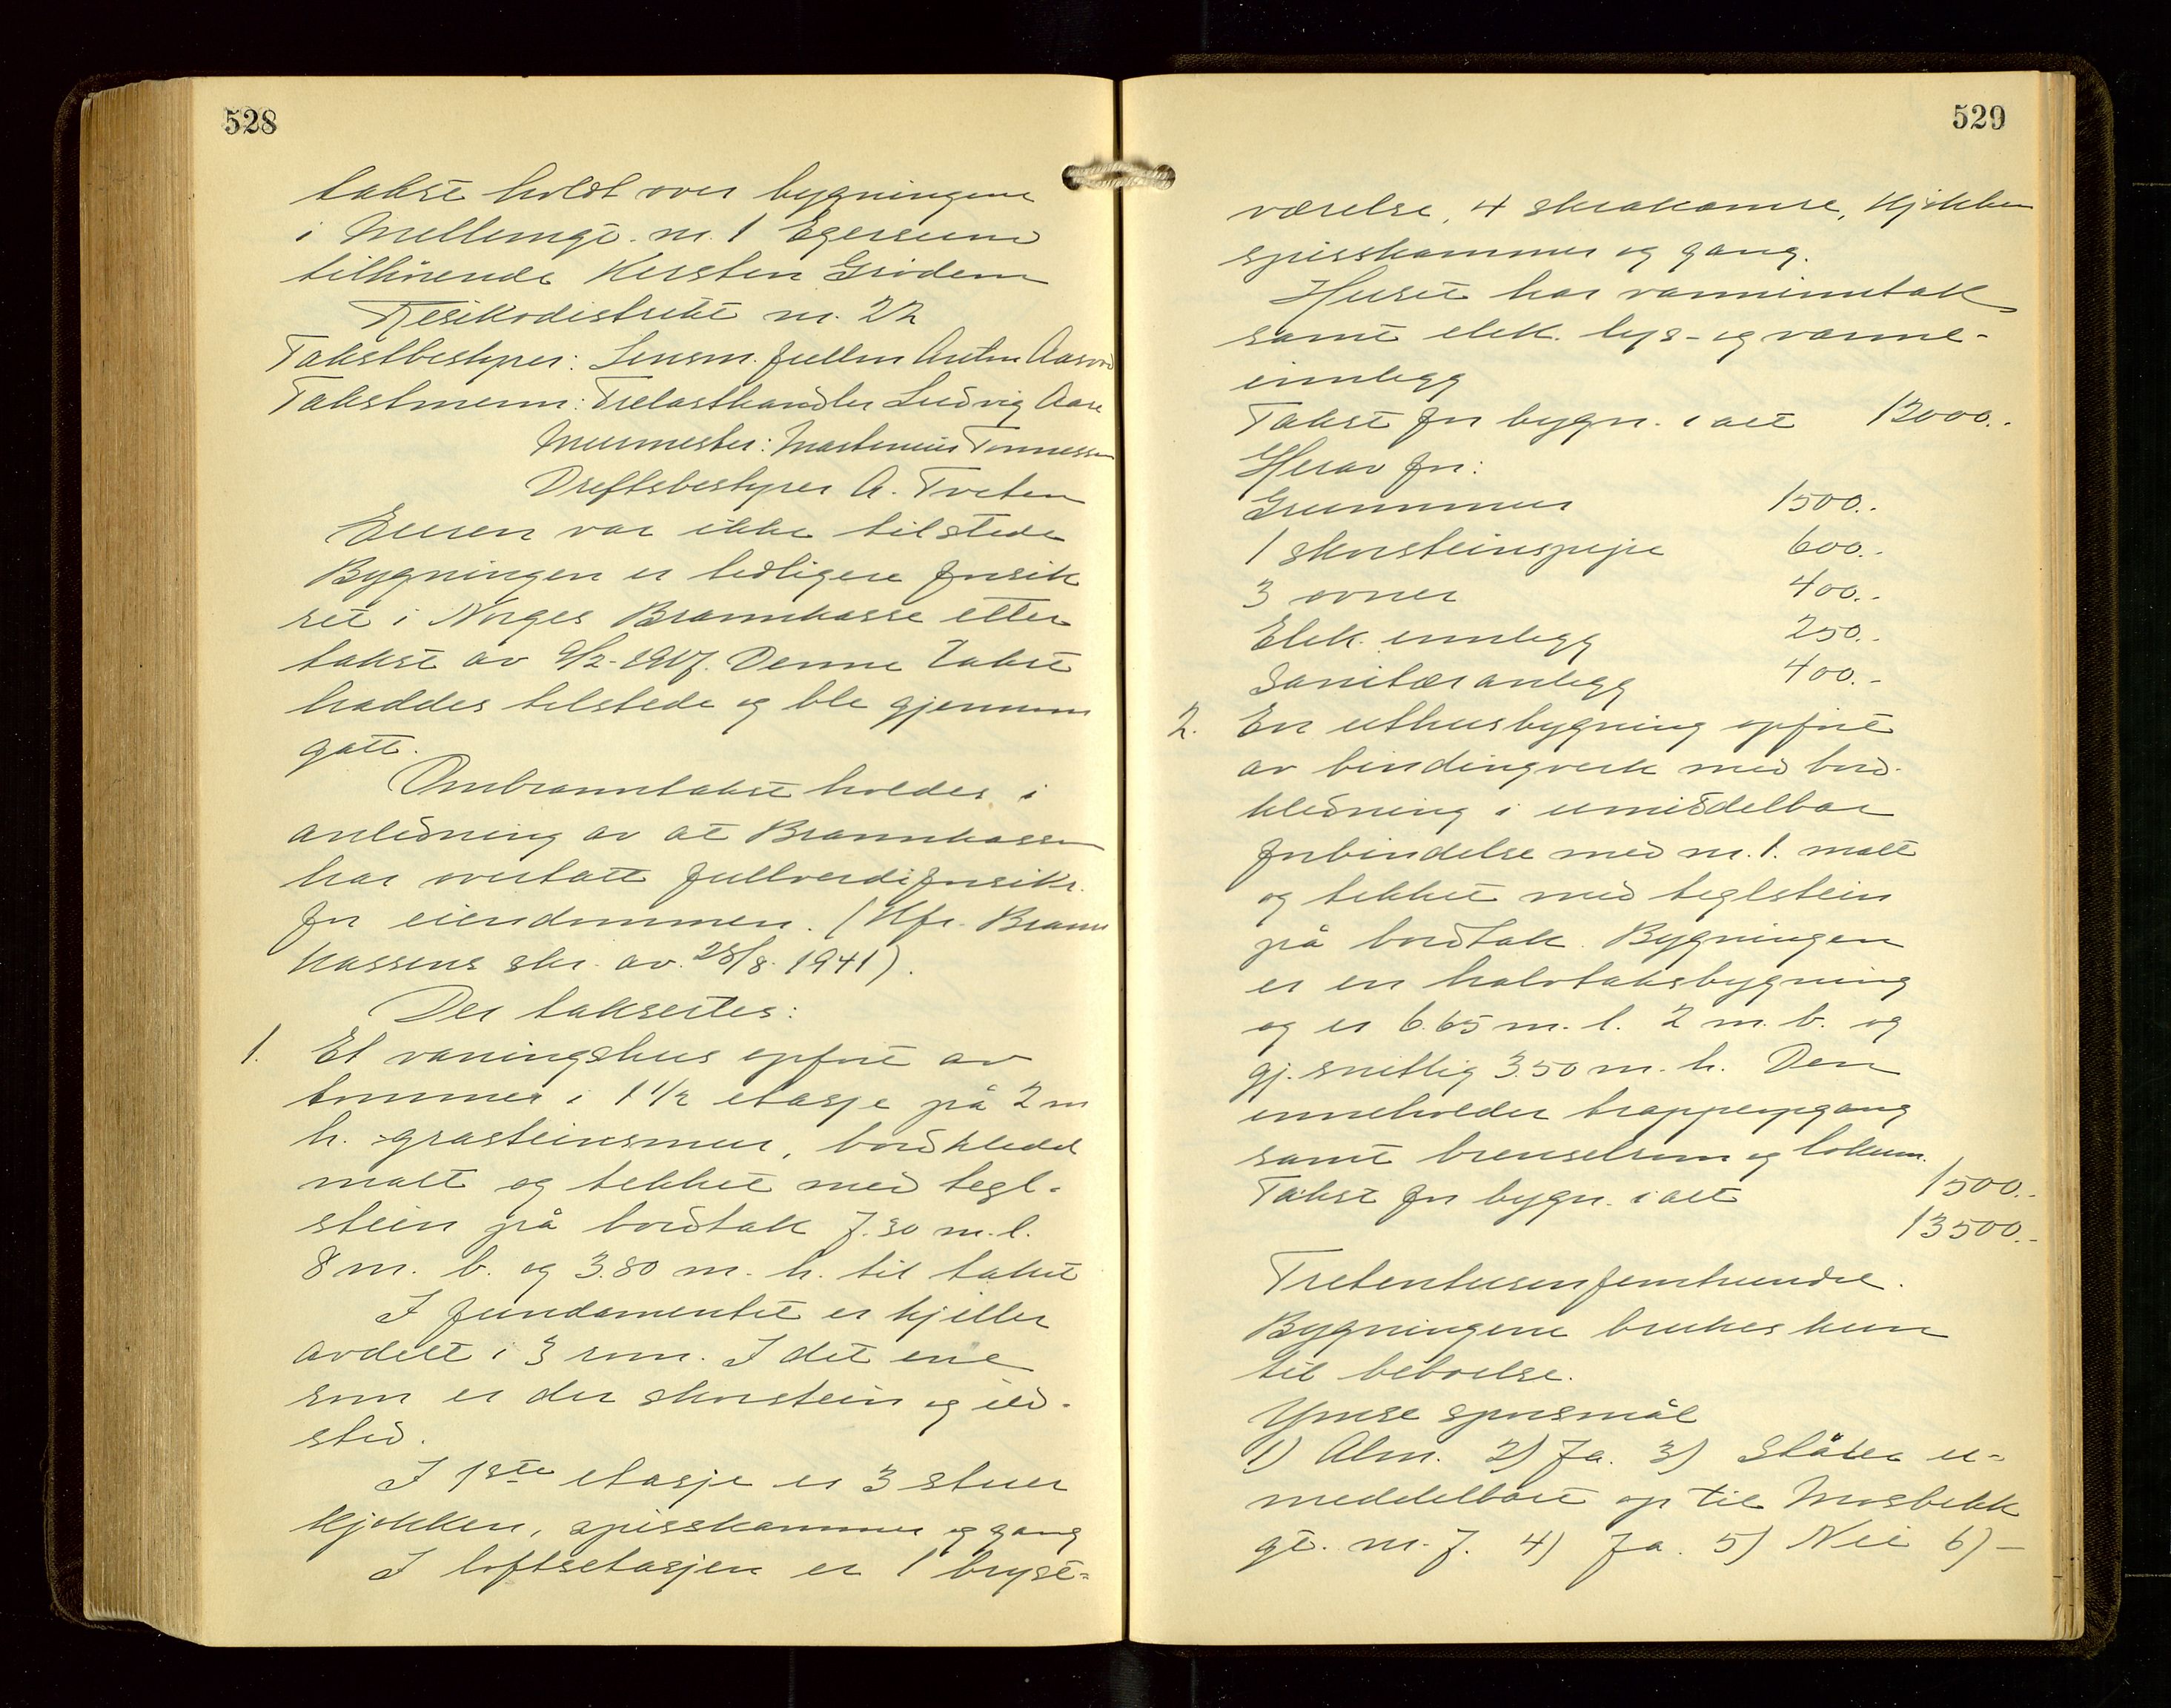 528
takst holdt over bygningene
i Mellemgt. nr. 1 Egersund
tilhörende Kersten Grödem
Resikodistrikt nr. 22
Takstbestyrer: Lensm. fullm Anton Aasvold
Takstmenn: Trelasthandler Ludvig Aase
Murmester: Martinius Tönnessen
Driftsbestyrer A. Tveten
Eieren var ikke tilstede
Bygningen er tidligere forsik
ret i Norges Brannkasse etter
takst av 9/2-1917. Denne takst
haddes tilstede og ble gjennem
gått.
Ombranntakst holdes i
anledning av at Brannkassen
har overtatt fullverdiforsikr.
for eiendommen. (Kfr. Brann
kassens skr. av. 28/8. 1941).
Der takseres:
1. Et våningshus opfört av
tömmer i 1 1/2 etasje på 2 m
h. gråsteinsmur, bordkledd
malt og tekket med tegl-
stein på bordtak 7.30 m. l.
8 m. b. og 3.80 m. h. til taket
I fundamentet er kjeller
avdelt i 3 rom. I det ene
rom er der skorstein og ild-
sted.
I 1ste etasje er 3 stuer
kjökken, spisskammer og gang
I loftsetasjen er 1 bryst-
529
værelse, 4 skråkamre, kjökken
spisskammer og gang.
Huset har vanninntak
samt elek. lys- og varme-
innlegg
Takst for bygn. i alt 12000.-
Herav for:
Grunnmur 1500.-
1 skorsteinspipe 600.-
3 ovner 400.-
Elek. innlegg 250.-
Sanitæranlegg 400.-
2. En uthusbygning opfört
av bindingverk med bord-
kledning i umiddelbar
forbindelse med nr. 1. malt
og tekket med teglstein
på bordtak. Bygningen
er en halvtaksbygning
og er 6.65 m. l. 2 m. b. og
gj. snittlig 3.50 m. h. Den
inneholder trappeopgang
samt brenselrum og lokum.
Takst for bygn. i alt 1500.-
13500.-
Trettentusenfemhundre.
Bygningene brukes kun
til beboelse.
Ymse spörsmål
1) Alm. 2) Ja. 3) Ståter u-
meddelbart op til Mosbekk
gt. nr. 7. 4) Ja. 5) Nei 6) -